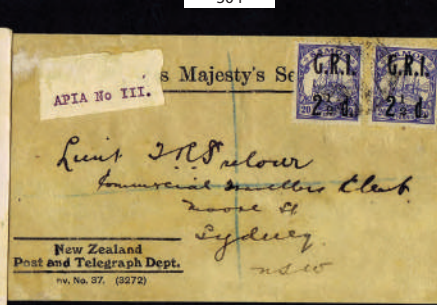 s Majesty's Se
APIA No III.
SAMOA
G.R.I.
2½ d.
20
G.R.I.
2½ d.
Lieut
Commercial Travellers Club
Moore St
Sydney
NSW
New Zealand
Post and Telegraph Dept.
nv. No. 37. (3272)